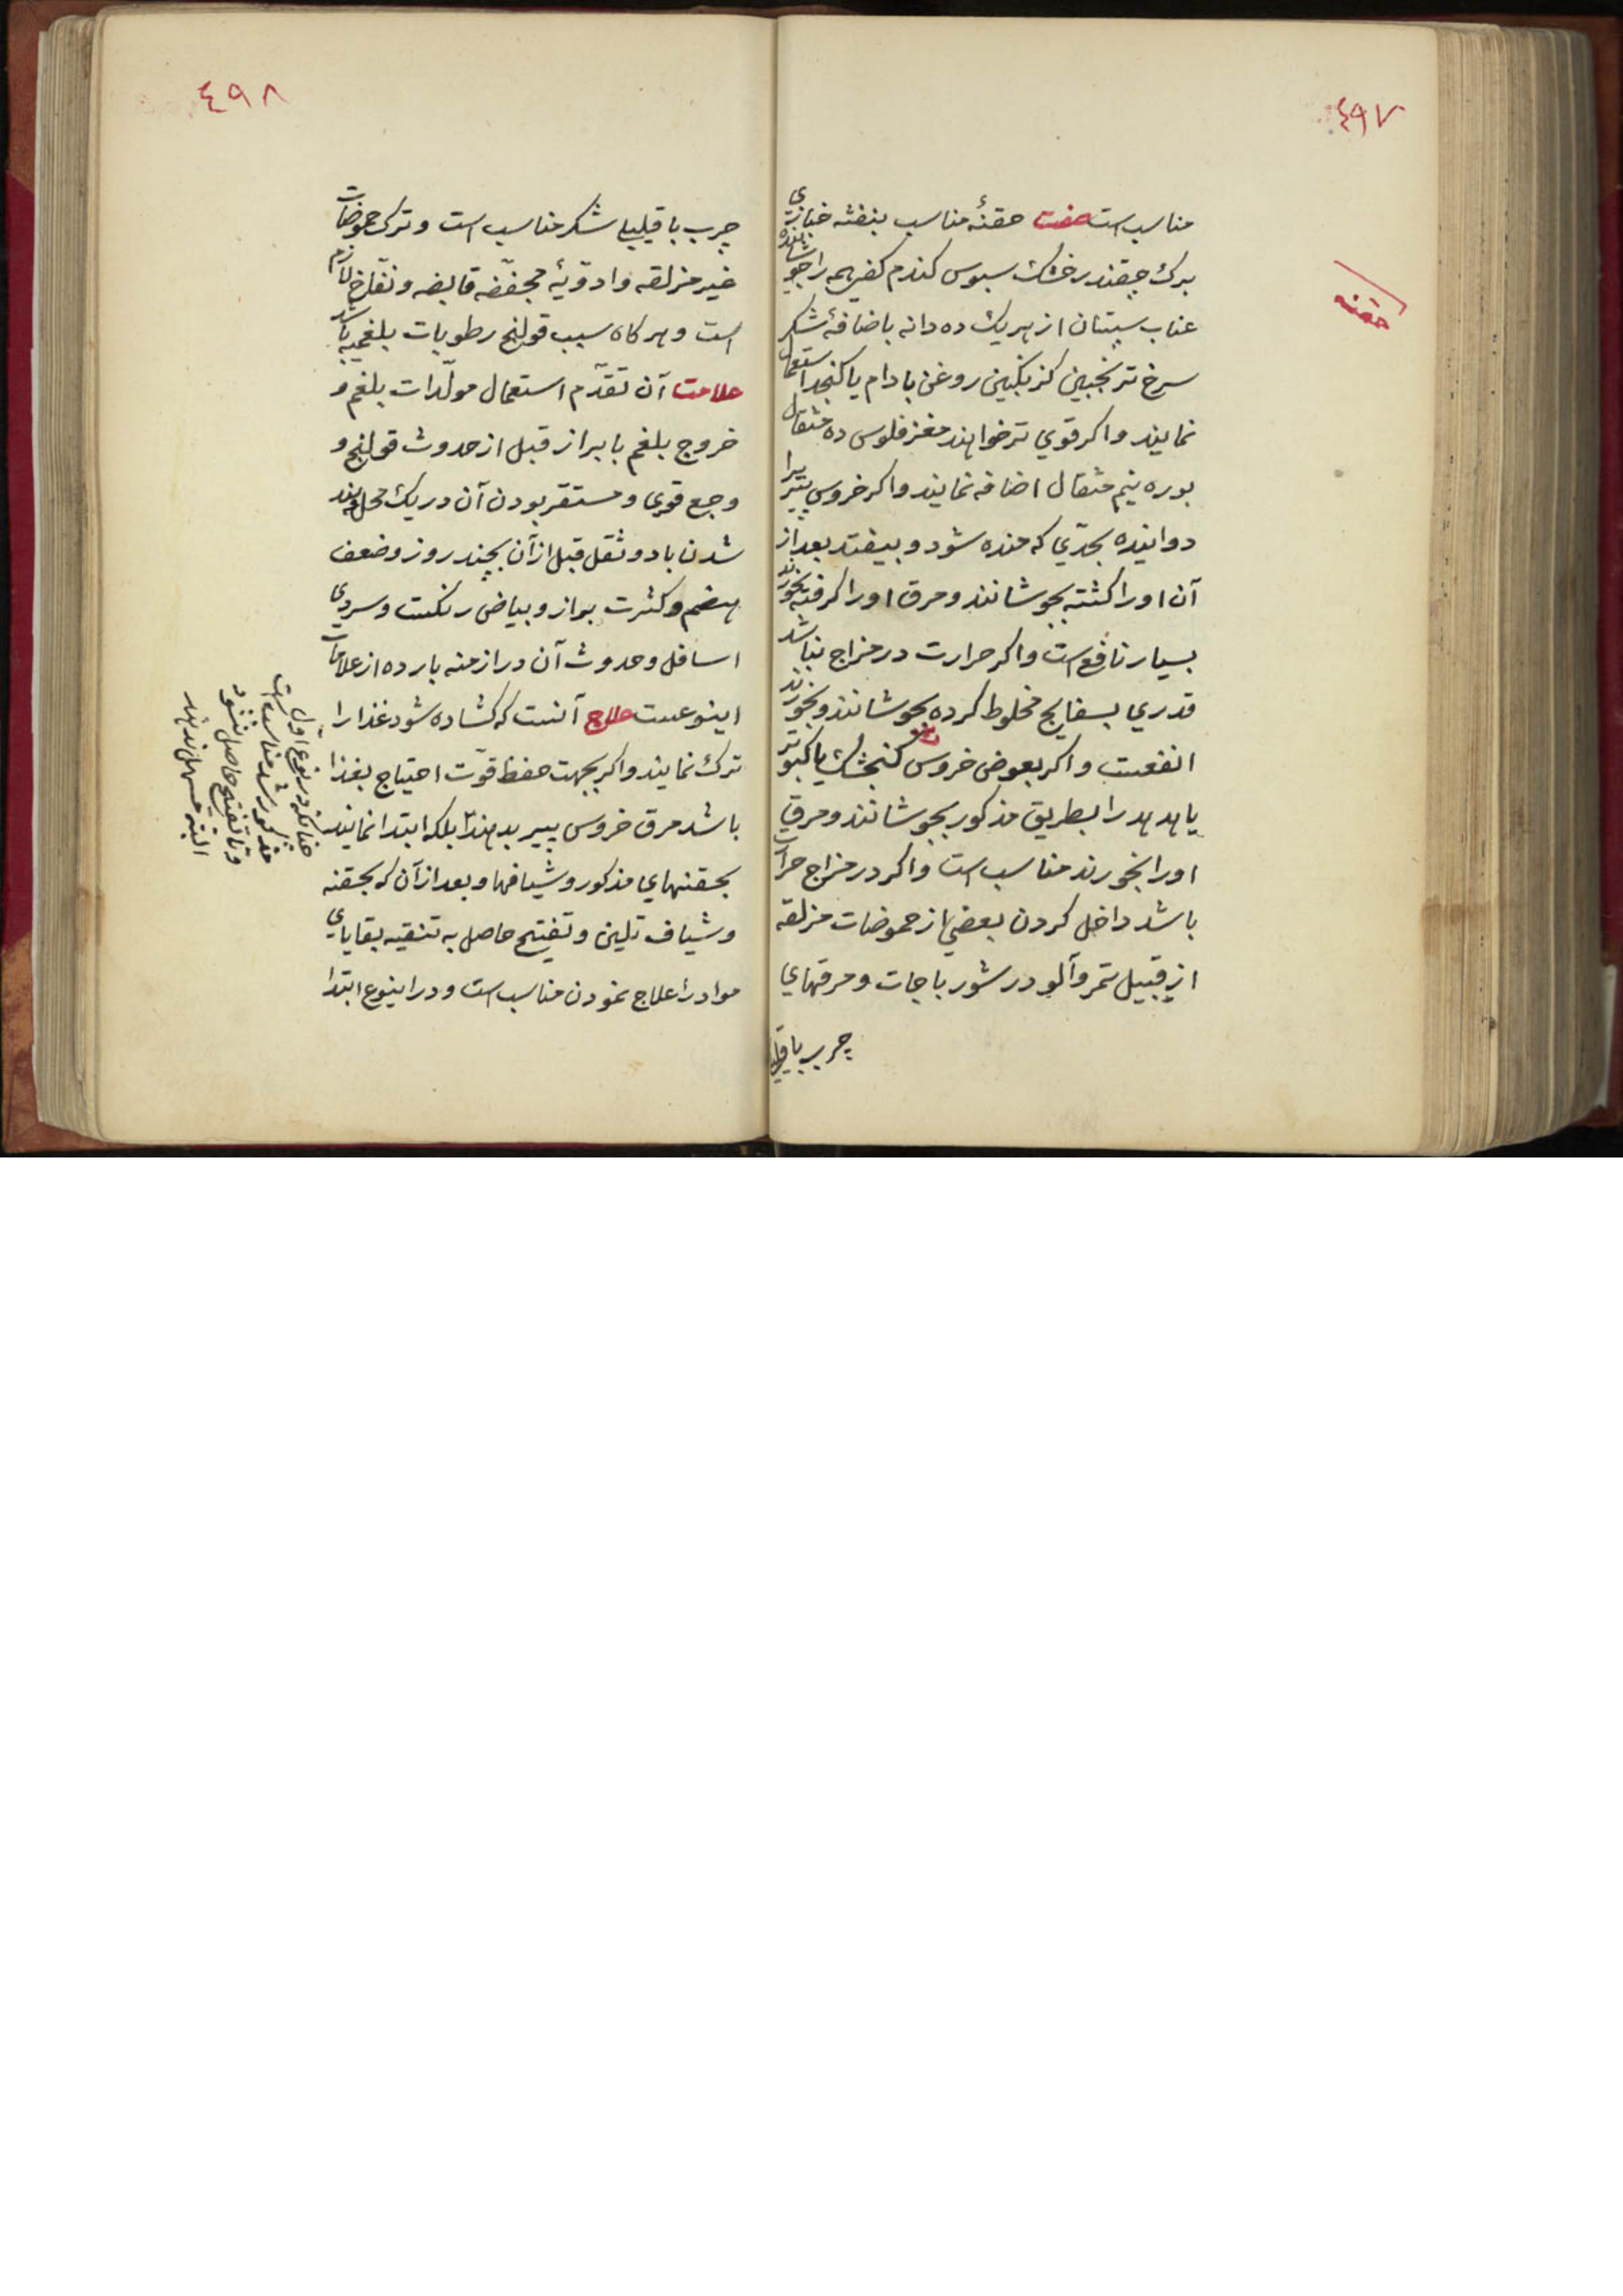 ٤٩٧
مناسب است صفت حقنهٔ مناسب بنفشه خبازی
برك چقندر خشك سبوس كندم كفی همه را جوشانیده
عناب سپستان از هریك ده دانه باضافهٔ شكر
سرخ ترنجبین كزنكبین روغن بادام یا كنجد استعمال
نمایند و اكر قوی تر خواهند مغز فلوس ده مثقال
بوره نیم مثقال اضافه نمایند و اكر خروس پیر را
دوانیده بحدّی كه مانده شود و بیفتد بعد از
آن اورا كشته بجوشانند و مرق اورا كرفته بخورند
بسیار نافع است و اكر حرارت در مزاج نباشد
قدری بسفایج مخلوط كرده بجوشانند و بخورند
انفعست و اكر بعوض خروس كنجشك یا كبوتر
یا هدهد را بطریق مذكور بجوشانند و مرق
اورا بخورند مناسب است و اكر در مزاج حرارت
باشد داخل كردن بعضی از حموضات مزلقه
از قبیل تمر و آلو در شورباجات و مرقهای
چرب باقلیلی
حقنه
٤٩٨
چرب با قلیلی شكر مناسب است و ترك حموضات
غیر مزلقه و ادویهٔ مجففه قابضه و نفّاخ لازم
است و هر كاه سبب قولنج رطوبات بلغمیه باشد
علامت آن تقدّم استعمال مولّدات بلغم و
خروج بلغم با براز قبل از حدوث قولنج و
وجع قوی و مستقر بودن آن در یك محل و بند
شدن باد و ثقل قبل از آن بچند روز و ضعف
هضم و كثرت براز و بیاض رنكست و سردی
اسافل و حدوث آن در ازمنه بارده از علامات
اینوعست علاج آنست كه كشاده شود غذا را
ترك نمایند و اكر بجهت حفظ قوّت احتیاج بغذا
باشد مرق خروس پیر بدهند بلكه ابتدا نمایند
بحقنهای مذكور و شیافها و بعد از آن كه بحقنه
و شیاف تلین و تفتیح حاصل به تنقیه بقایای
مواد را علاج نمودن مناسب است و در اینوع ابتدا
چنانكه در نوع اول
مذكور شد مناسب است
و تا تفتیح حاصل نشود
البته مسهل ندهند